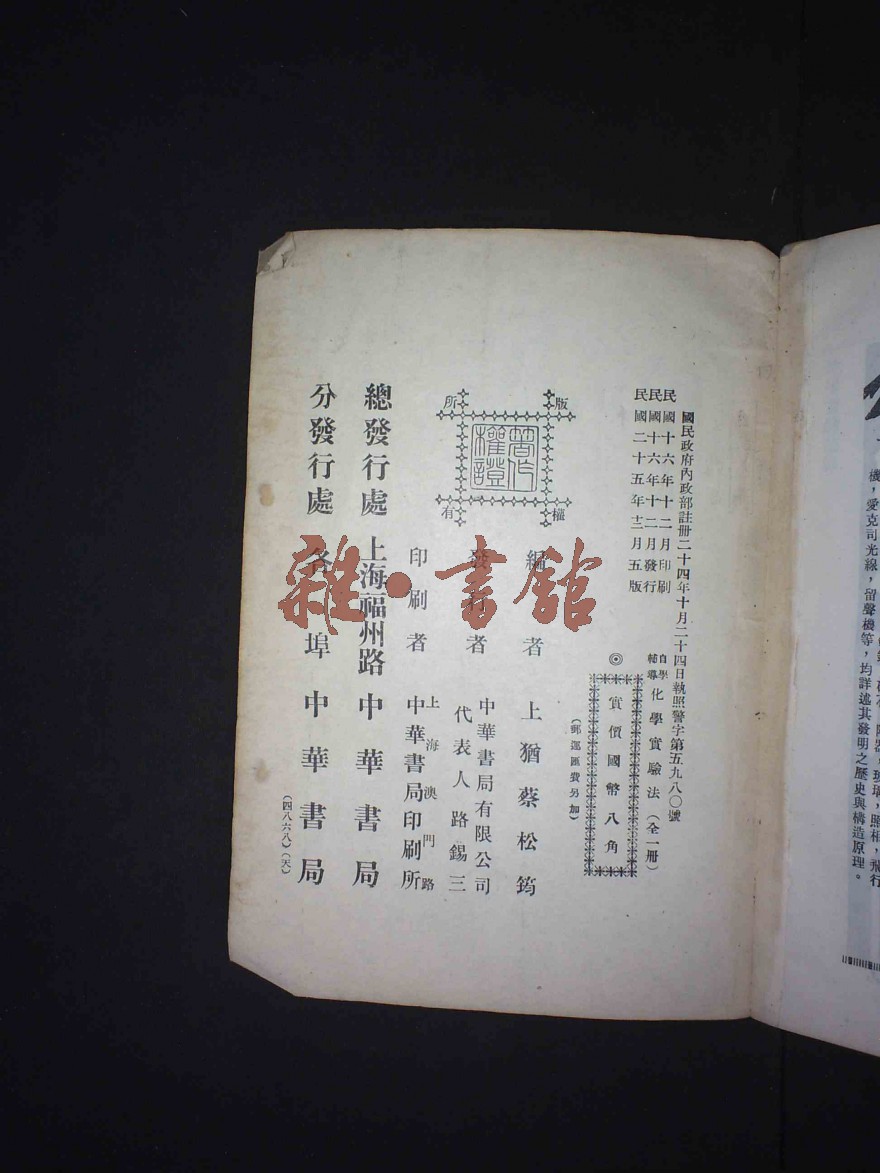 國民政府內政部註冊二十四年十月二十四日執照警字第五九八〇號
民國十六年十二月印刷
民國十六年十二月發行
民國二十五年十二月五版
自學輔導 化學實驗法(全一冊)
◎ 實價國幣八角
(郵運匯費另加)
版權所有
著作權證
編者 上猶蔡松筠
發行者 中華書局有限公司
代表人路錫三
印刷者 上海澳門路
中華書局印刷所
總發行處 上海福州路中華書局
分發行處 各埠中華書局
(四八六八)(天)
雜·書館
機,愛克司光線,留聲機等,均詳述其發明之歷史與構造原理。
玻璃,照相,飛行